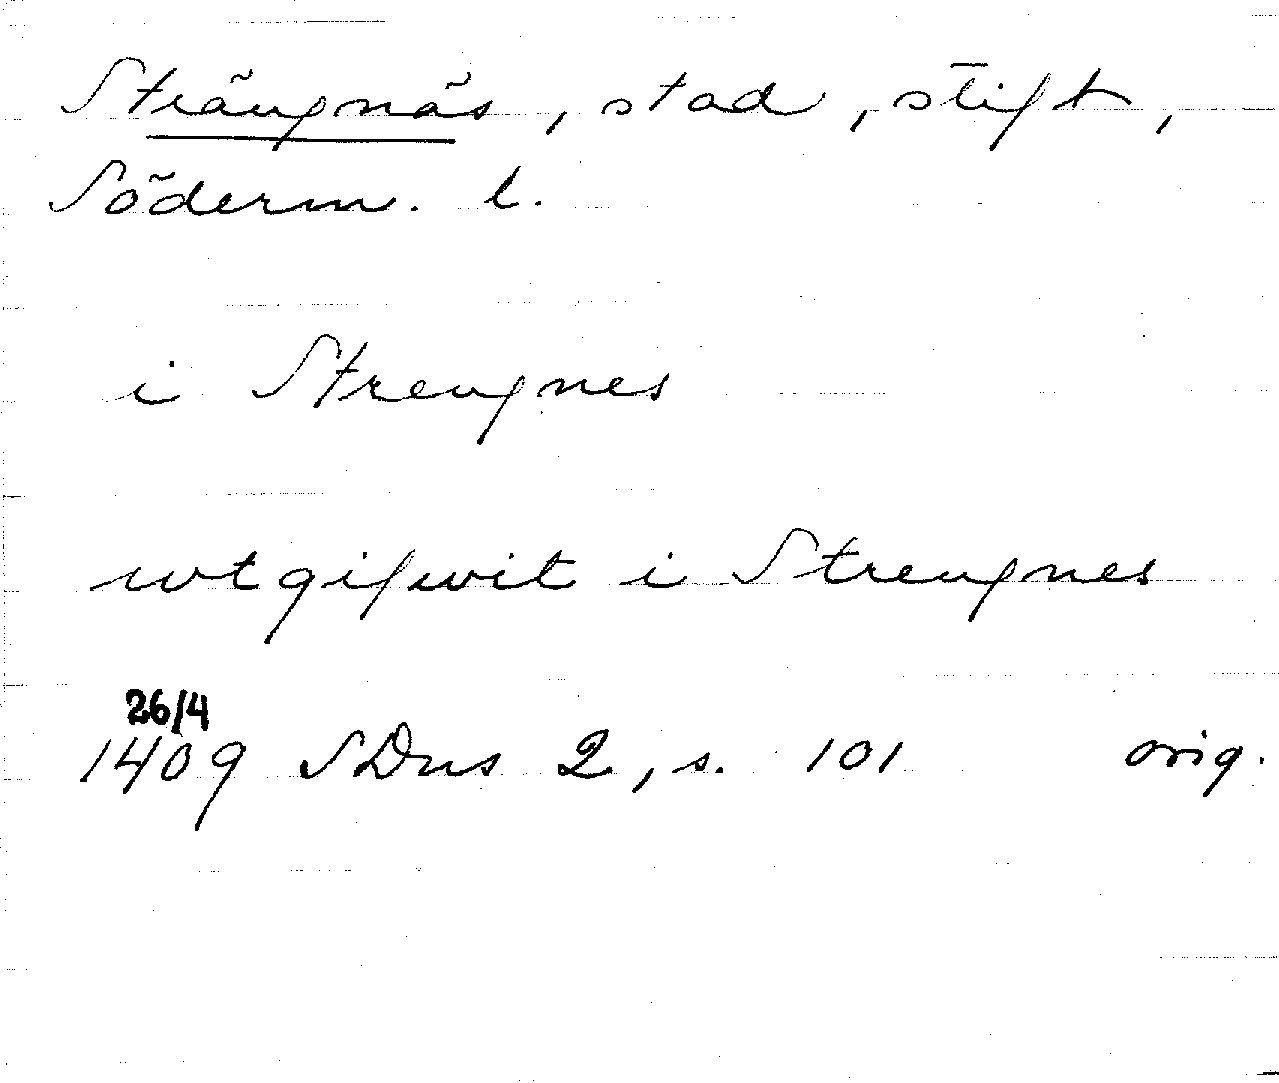 Strängnäs, stad, stift,
Söderm. l.
i Strengnes
wtgifwit i Strengnes
26/4
1409 SDns 2, s. 101 orig.